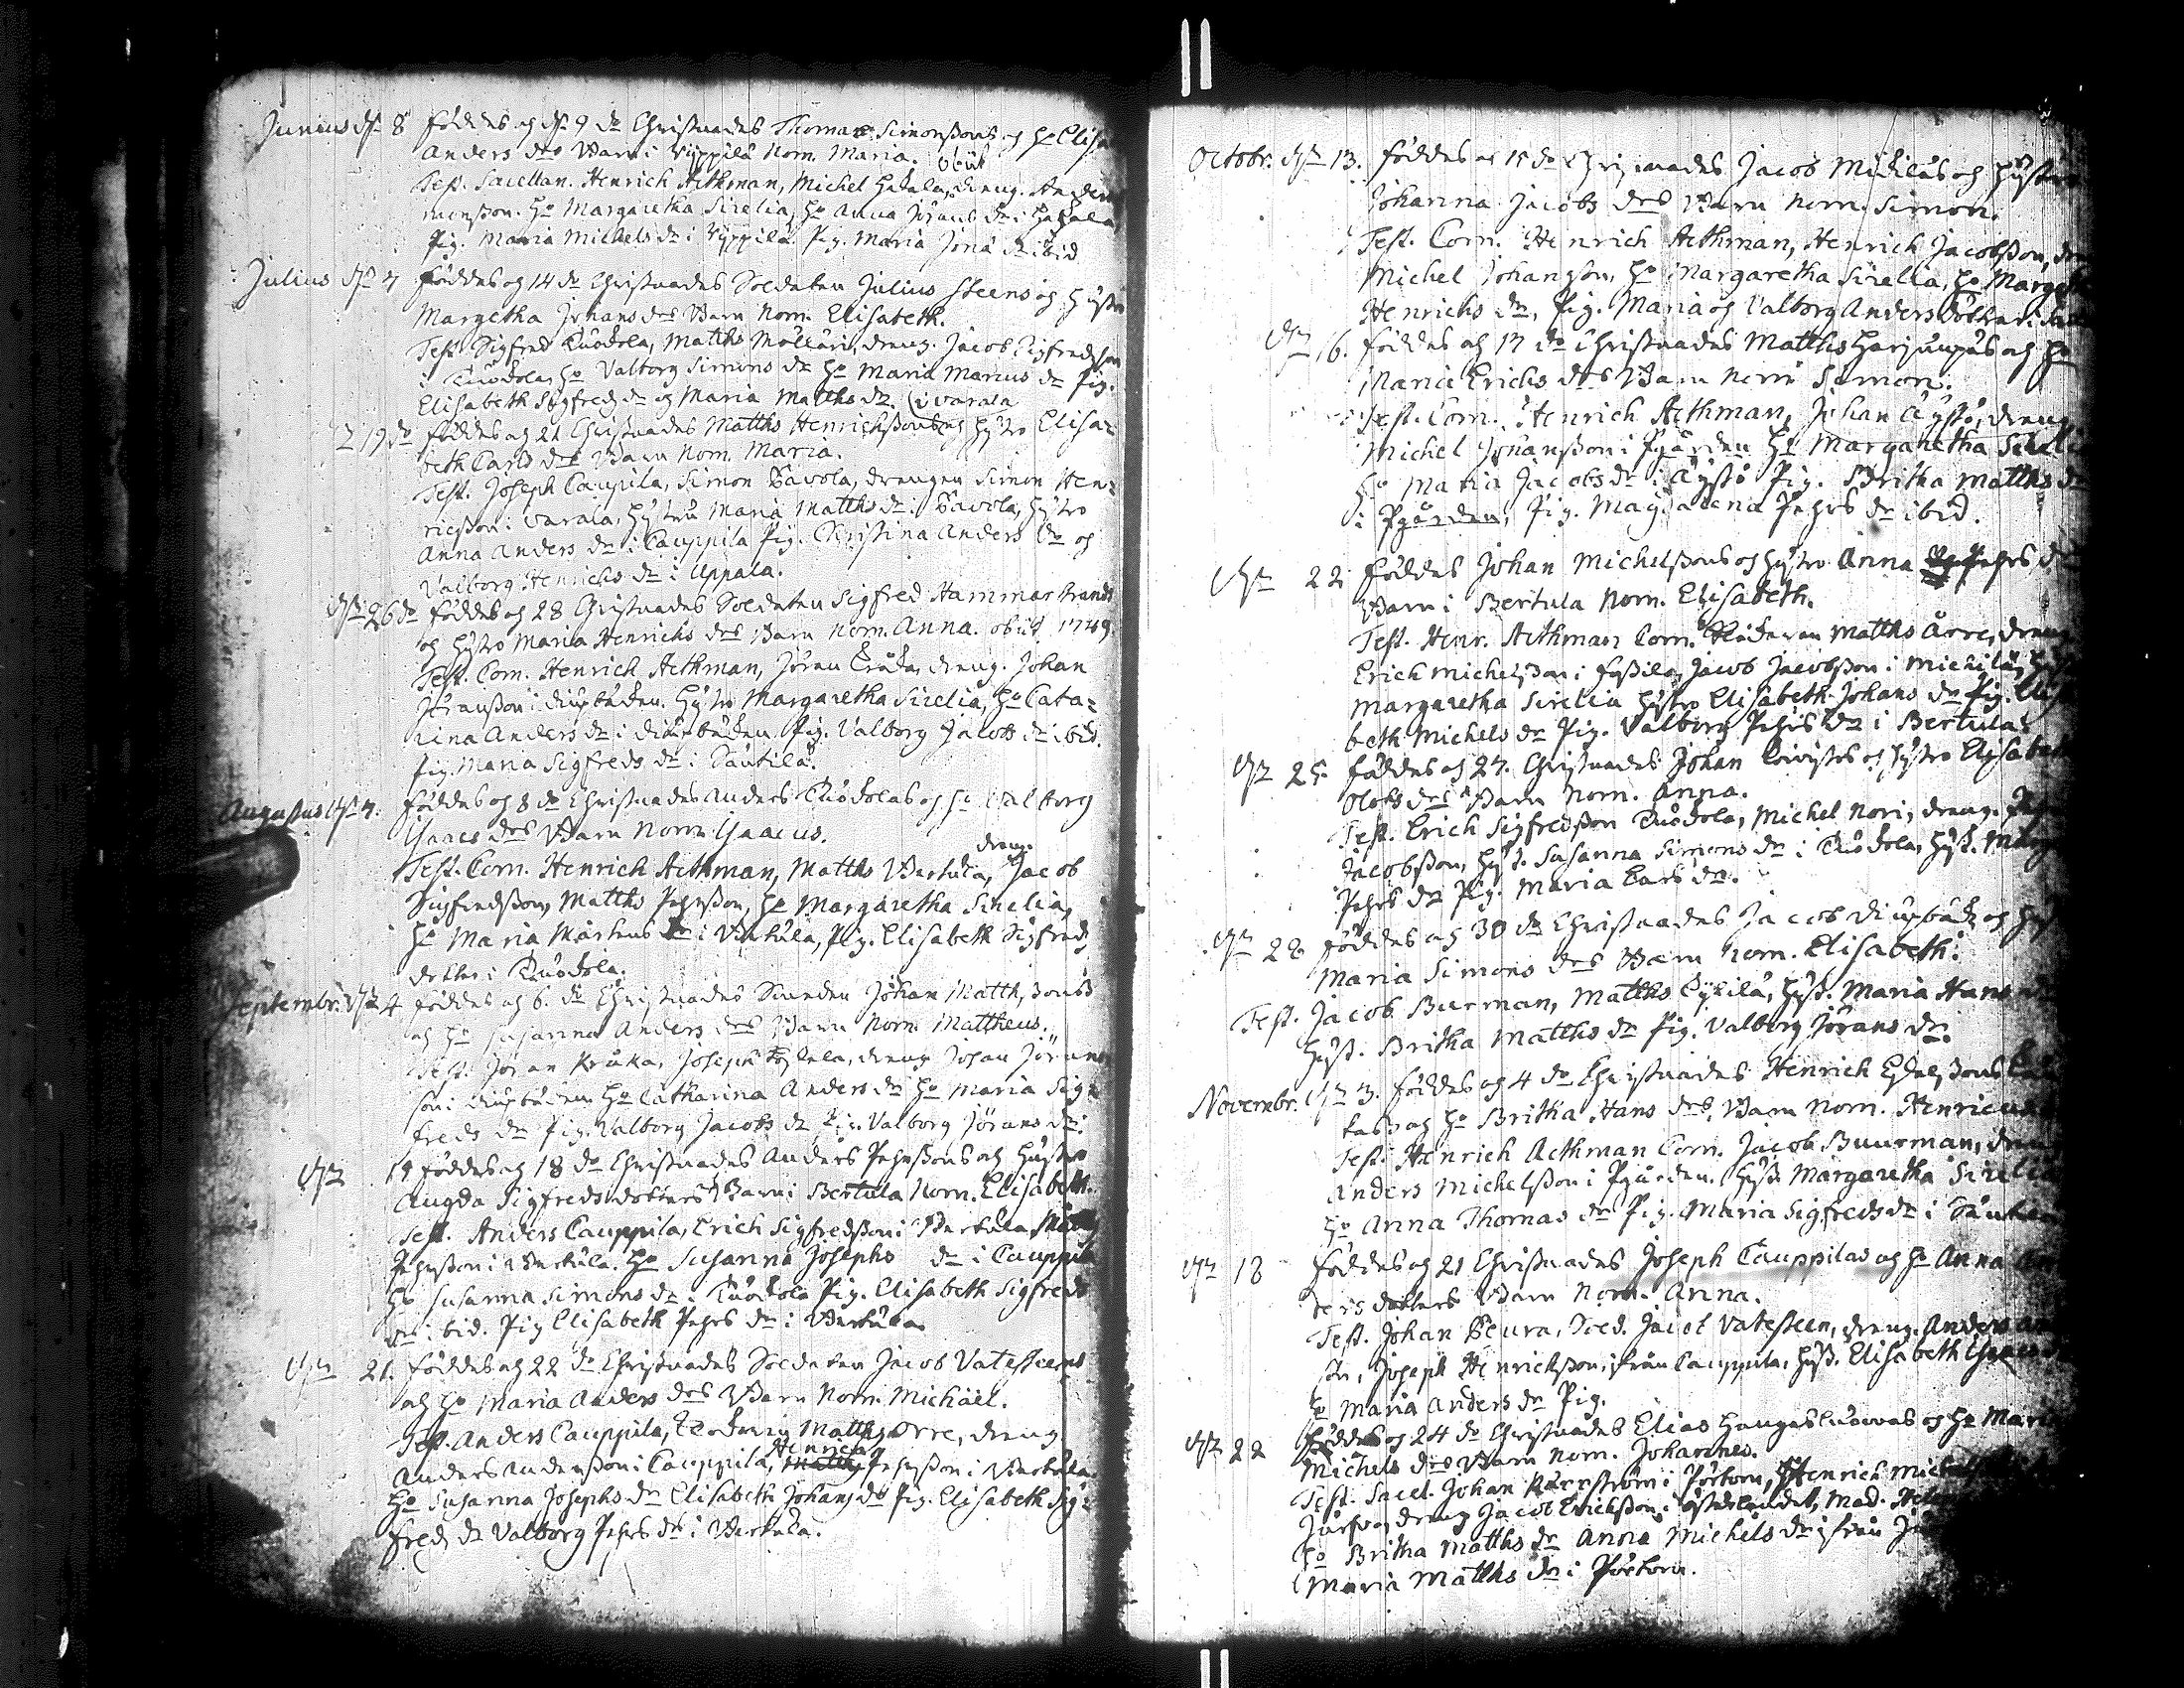 Junius d. 8 föddes og d. 9 do Christnades Thomas Simonssons og ho Elisa
Anders drs Barn i Yppilä Nom. Maria. obiit
Test. Sacellan. Henrich Aethman, Michel Hakala, dreng. Anders
monsson. ho Margaretha Sirelia, ho Anna Jörans dr i Hakala
Pig. Maria Michels dr i Yppilä. Pig. Maria Jonä dr ibid
Julius d. 7 föddes og 14 do Christnades Soldaten Julius Steens og hustro
Margetha Johans drs Barn Nom. Elisabeth.
Test. Sigfred Ruodola, Matths Mållari, dreng. Jacob Sigfredsson
i Ruodola, ho Valborg Simons dr ho Maria Marcus dr Pig.
Elisabeth Sigfreds dr og Maria Matths dr. (i Varala
19 do föddes og 21 Christnades Matths Henrichssons og hustro Elisa-
beth Carls drs Barn Nom. Maria.
Test. Joseph Caupila, Simon Pavola, drengen Simon Hen-
ricsson i Varala, hustru Maria Matths dr i Pavola, hustro
Anna Anders dr i Cauppila Pig. Christina Anders dr og
Valborg Henrichs dr i Uppala.
26 do föddes og 28 Christnades Soldaten Sigfred Hammarstrands
og hustro Maria Henrichs drs Barn Nom. Anna. obiit 1749.
Test. Com. Henrich Aethman, Jöran Kråka, dreng. Johan
Jöransson i diupbäcken. hustro Margaretha Sirelia, ho Cata-
rina Anders dr i diupbäcken Pig. Valborg Jacobs dr ibid.
Pig. Maria Sigfreds dr i Säntilä.
Augustus d. 7. föddes og 8 do Christnades Anders Ruodolas og ho Valborg
Isaacs drs Barn Nom Isaacus.
Test. Com. Henrich Aethman, Matths Bertula, dreng. Jacob
Sigfredsson, Matths Pehrsson, ho Margaretha Sirelia,
ho Maria Mårtens dr i Bertula, Pig. Elisabeth Sigfreds
dotter i Ruodola.
Septembr. d. 4 föddes og 6. do Christnades Johan Matthssons
og ho Susanna Anders drs Barn Nom. Mattheus.
Test. Jöran Kråka, Joseph dreng Johan Jörans
son i diupbäcken ho Catharina Anders dr ho Maria Sig-
freds dr Pig. Valborg Jacobs dr Pig. Valborg Jörans dr
17 föddes og 18 do Christnades Anders Pehrssons og hustro
Augda Sigfreds dotters Barn i Bertula Nom. Elisabeth.
Test. Anders Cauppila, Erich Sigfredsson i Bertula
Pehrsson i Bertula. ho Susanna Josephs dr i Cauppila
ho Susanna Simons dr. Ruodola Pig. Elisabeth Sigfreds
dr ibid. Pig Elisabeth Pehrs dr i Bertula
21. föddes og 22 do Christnades Soldaten Jacob Vatesteens
og ho Maria Anders drs Barn Nom. Michaël.
Test. Anders Cauppila, Matths Orre, dreng
Anders Andersson i Cauppila, Henrich Pehrsson i Bertula
ho Susanna Josephs dr Elisabeth Johans dr Pig. Elisabeth Sig-
freds dr Valborg Pehrs dr i Bertula.
Octobr. d. 13. föddes og 15 do Christnades Jacob Michiläs og hustro
Johanna Jacobs drs Barn Nom. Simon.
Test. Com. Henrich Aethman, Henrich Jacobsson, dreng
Michel Johansson, ho Margaretha Sirelia, ho Margetha
Henrichs dr, Pig. Maria og Valborg Anders döttrar i
16. föddes og 17 do Christnades Matths Harjunpäs og ho
Maria Erichs drs Barn Nom Simon.
Test. Com. Henrich Aethman, Johan Äystö, dreng
Michel Johansson i Pgården ho Margaretha Sirelia
ho Maria Jacobs dr i Äystö Pig. Britha Matths dr
i Pgården, Pig. Magdalena Pehrs dr ibid.
22 föddes Johan Michelssons og hustro Anna Pehrs dr
Barn i Bertula Nom. Elisabeth.
Test. Henr. Aethman Com. Matths Årre, dreng
Erich Michelsson i Jossila, Jacob Jacobsson i Michilä,
Margaretha Sirelia hustro Elisabeth Johans dr Pig. Elisa
beth Michels dr Pig. Valborg Pehrs dr i Bertula.
25. föddes og 27. Christnades Johan Koivistos og hustro Elisabeth
Olofs drs Barn Nom. Anna.
Test. Erich Sigfredsson Ruodola, Michel Nori, dreng.
Jacobsson, hust. Susanna Simons dr i Ruodola, hust. Marg
Pehrs dr Pig. Maria Carls dr.
28 föddes og 30 do Christnades Jacob diupbäck og hust
Maria Simons drs Barn Nom. Elisabeth.
Test. Jacob Burman, Matths Cykilä, hust. Maria Hans
hust. Britha Matths dr Pig. Valborg Jörans dr.
Novembr. 3. föddes og 4 do Christnades Henrich
og ho Britha Hans drs Barn Nom. Henricus
Test. Henrich Aethman Com. Jacob Buurman, dreng
Anders Michelsson i Pgården. hust Margaretha Sirelia
ho Anna Thomas dr Pig. Maria Sigfreds dr i
18 föddes og 21 Christnades Joseph Cauppilas og ho Anna An
ders dotters Barn Nom. Anna.
Test. Johan Peura, Sold. Jacob Vatesteen, dreng. Anders
Joseph Henrichsson, från Cauppila, hust. Elisabeth Isaacs
ho Maria Anders dr Pig.
22 föddes og 24 do Christnades Elias Hangasluomas og ho Maria
Michels drs Barn Nom. Johannes.
Test. Sacel. Johan i Pörtom, Henrich Michels
dreng Jacob Erichsson i Mad.
ho Britha Matths dr Anna Michels dr från
Maria Matths dr i Pörtom.